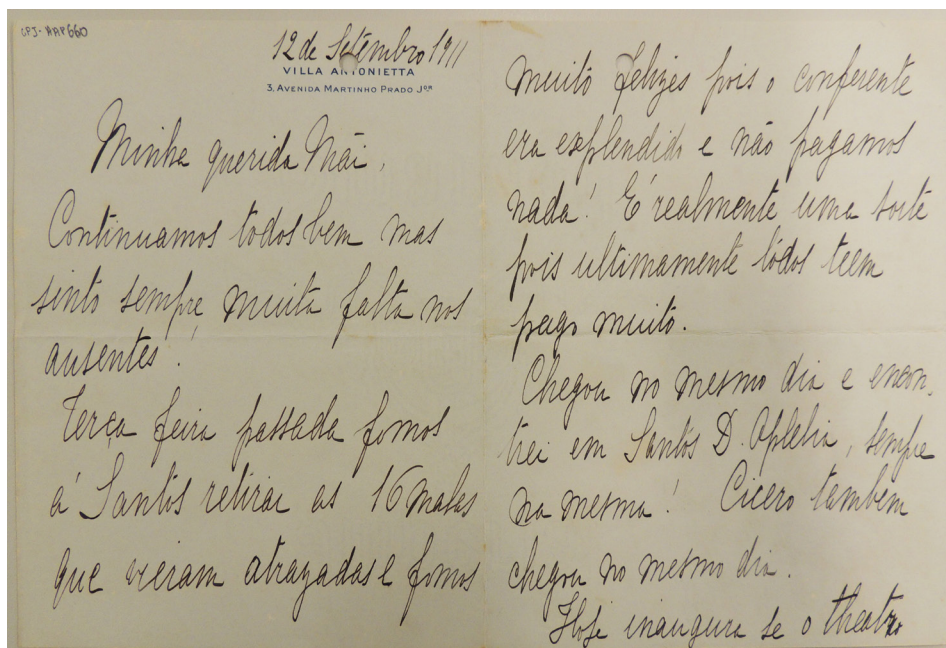 CPJ-MAP660
12 de Setembro 1911
VILLA ANTONIETTA
3, AVENIDA MARTINHO PRADO Jor
Minha querida Mãi,
Continuamos todos bem mas
sinto sempre muita falta nos
ausentes!
Terça feira passada fomos
á Santos retirar as 16 malas
que vieram atrazadas e fomos
muito felizes pois o conferente
era esplendido e não pagamos
nada! É realmente uma sorte
pois ultimamente tódos teem
pago muito.
Chegou no mesmo dia e encon-
trei em Santos D. , sempre
na mesma! Cicero tambem
chegou no mesmo dia.
Hoje inaugura se o theatro